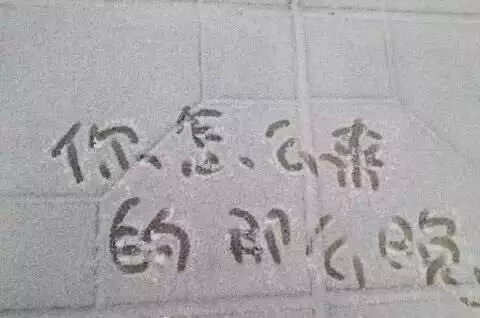 你怎么来
的那么晚